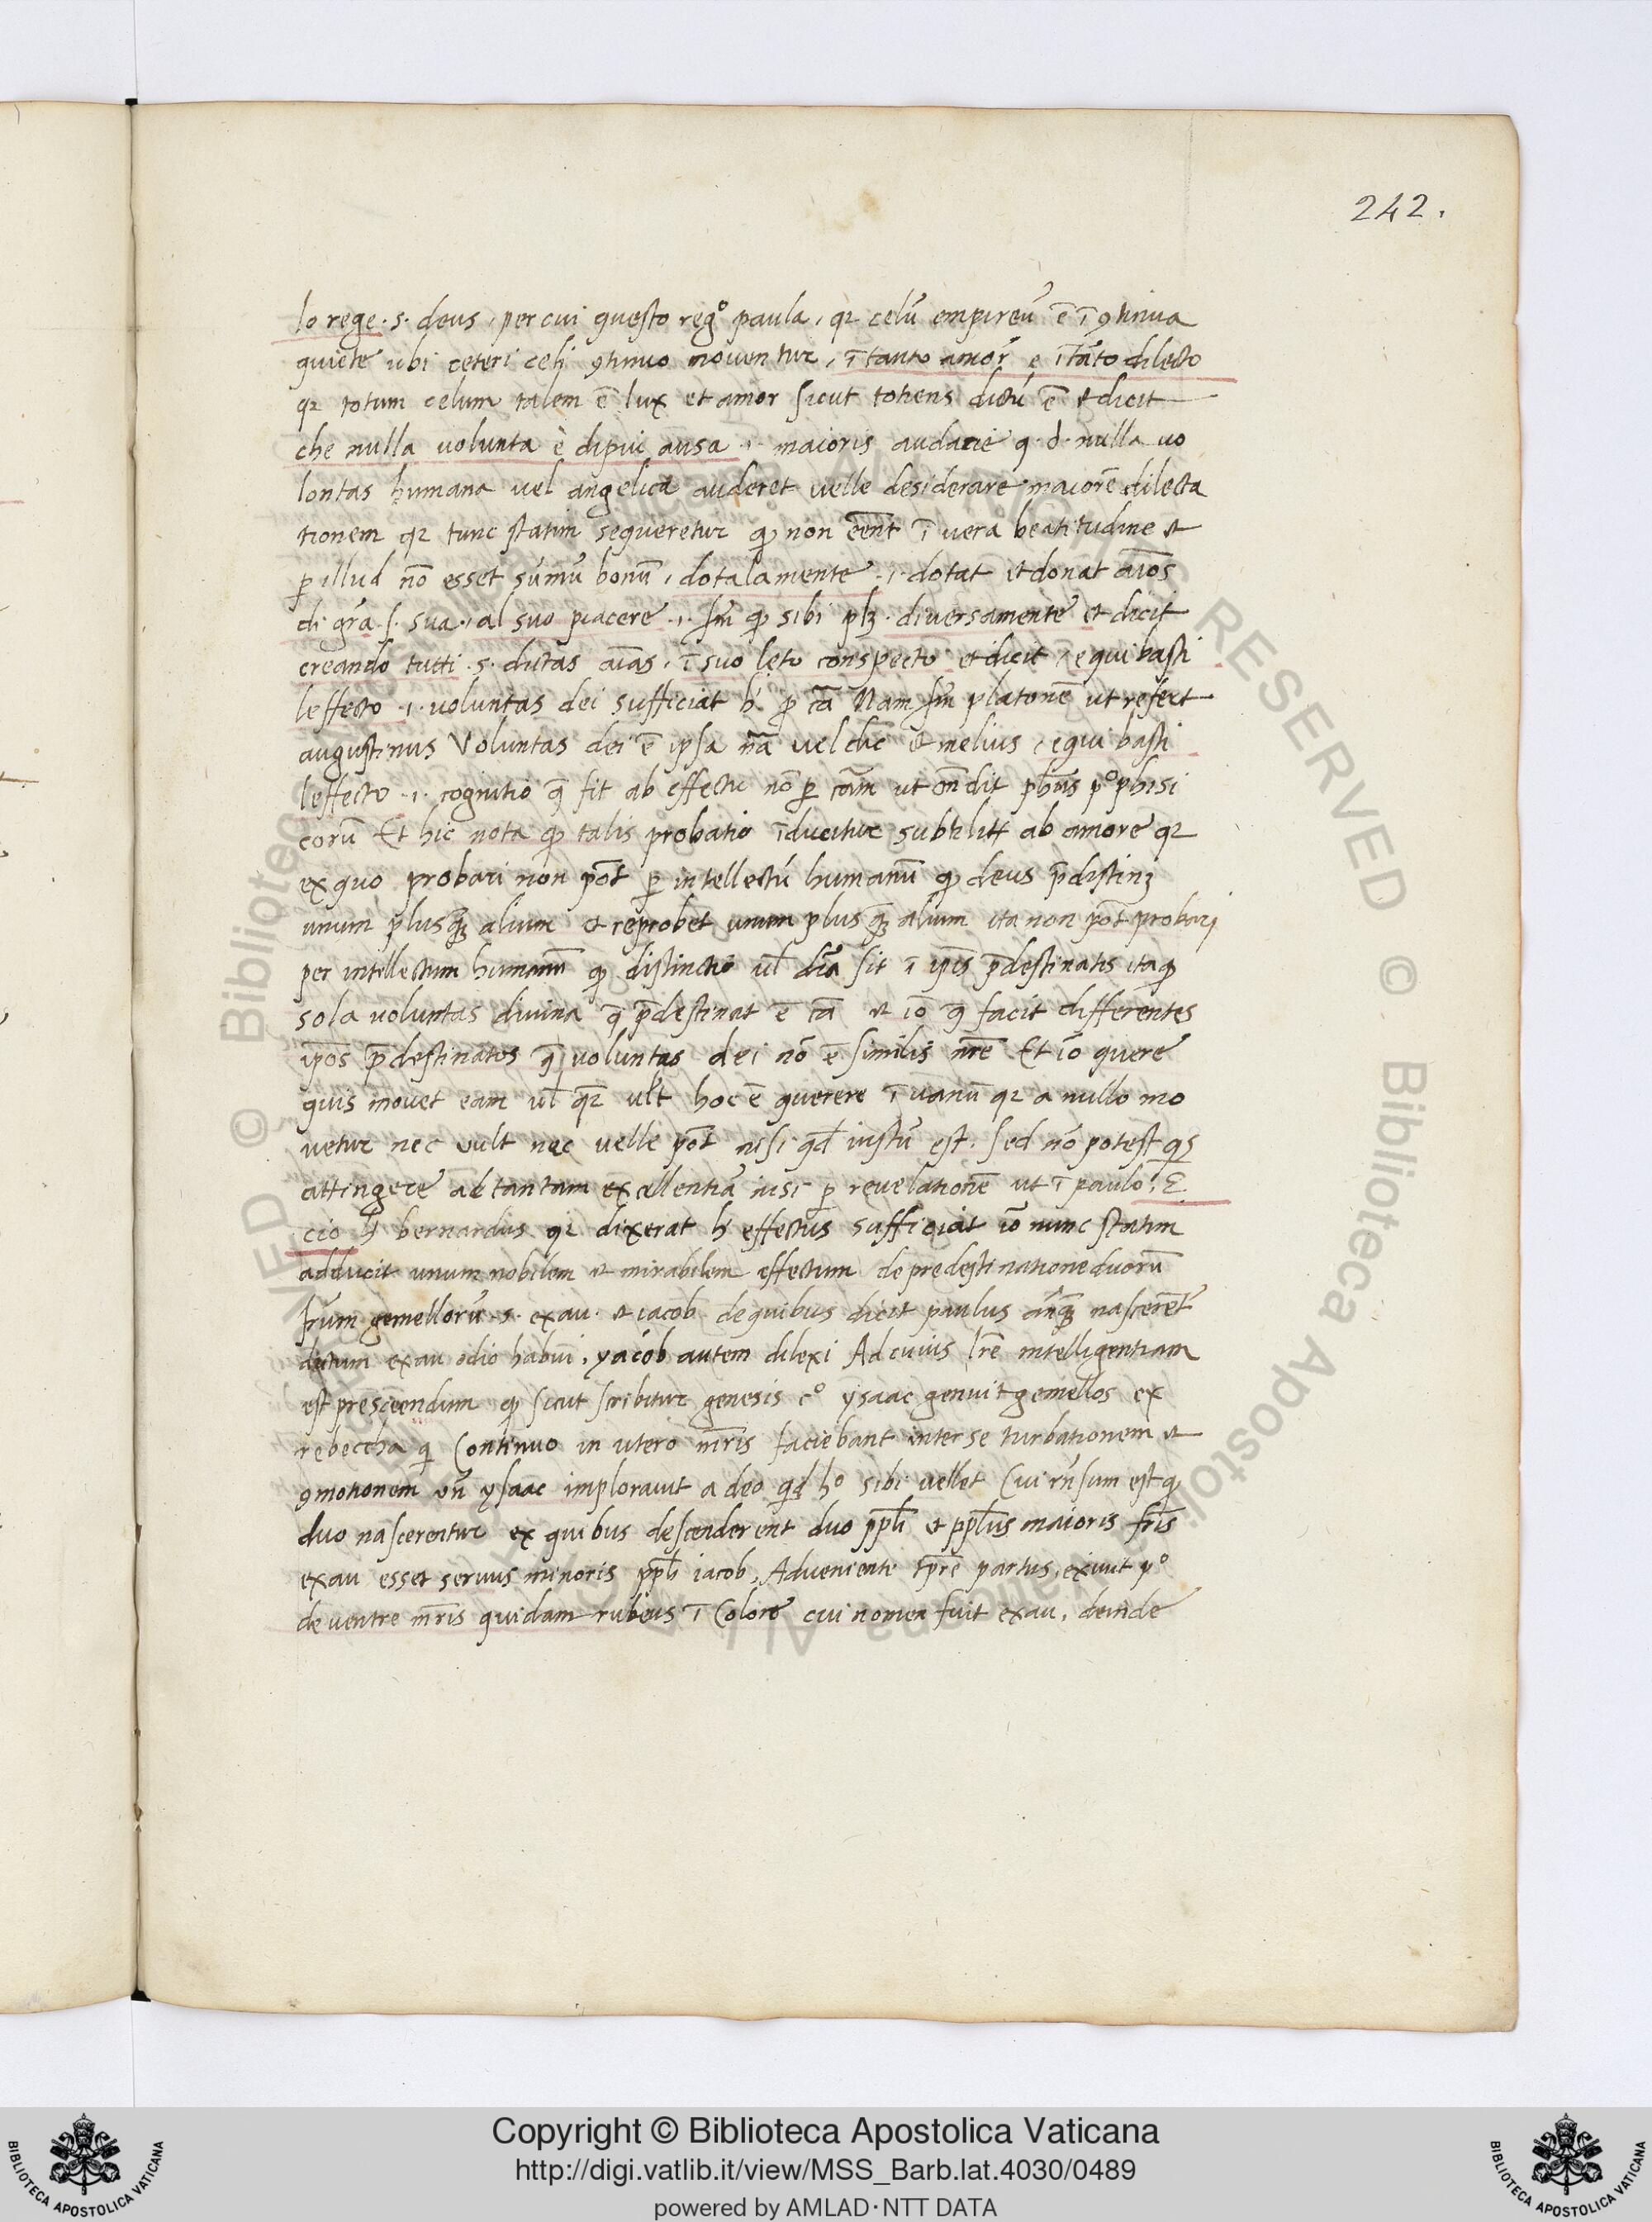 242.
lo rege .s. deus, per cui questo reg° paula, qꝛ celū empireū ē ī ꝯtinua
quiete ubi ceteri celi ꝯtinuo moventur, ī tanto amor e ītāto dilecto
qꝛ totum celum talem ē lux et amor sicut totiens dictū ē et dicit
che nulla volunta è dipiu ausa .i. maioris audacie q. d. nulla vo
lontas humana vel angelica auderet velle desiderare maiorē dilecta
tionem qꝛ tunc statim sequeretur ꝙ non eēnt ī vera beatitudine et
ꝑ illud nō esset sūmū bonū, dotalamente .i. dotat et donat aīos
di grā .s. sua, al suo piacere .i. ẜm ꝙ sibi plꝫ diversamente et dicit
creando tutti .s. dictas aīas, ī suo leto conspecto et dicit, e qui basti
leffecto .i. voluntas dei sufficiat h̄ ꝓ cā Nam ẜm platonē ut refert
augustinus Voluntas dei ē ipsa nā vel dic et melius, e qui basti
leffecto .i. cognitio q̄ fit ab effectu nō ꝑ cām ut ōndit ph̄us p° phisi
corū Et hic nota ꝙ talis probatio īducitur subtilitr ab amore qꝛ
ex quo probari non pōt ꝑ intellectū humanū ꝙ deus p̄distinꝫ
unum plusq̄ꝫ alium et reprobet unum plus q̄ꝫ alium ita non pōt probari
per intellectum humanū ꝙ distinctio ul̄ dr̄ia sit ī ip̄is p̄destinatis itaꝙ
sola voluntas divina q̄ p̄destinat ē cā et iō q̄ facit differentes
ip̄os p̄destinatos q̄ voluntas dei nō ē similis nr̄e Et iō quere
quis movet eam ul̄ qr̄ ult hoc ē querere ī vanū qꝛ a nullo mo
vetur nec vult nec velle pōt nisi qd̄ iustū est. Sed nō potest qs
attingere ad tantam excellentiā nisi ꝑ revelationē ut ī paulo. E
cio h̄ bernardus qꝛ dixerat h̄ effectus sufficiat iō nunc statim
adducit unum nobilem et mirabilem effectum de predestinatione duorū
fr̄um gemellorū .s. exau et iacob de quibus dicit paulus an̄q̄ꝫ nascerēt
dictum exau odio habui, yacob autem dilexi Ad cuius lr̄e intelligentiam
est presciendum ꝙ sicut scribitur genesis c° ysaac genuit gemellos ex
rebeccha q̇ Continuo in utero mr̄is faciebant inter se turbationem et
ꝯmotionem un̄ ysaac imploravit a deo qd̄ h° sibi vellet Cui rn̄sum est ꝙ
duo nascerentur ex quibus descenderent duo ppl̄i et ppl̄us maioris fr̄is
exau esset servus minoris ppl̄i iacob, Adveniente tp̄re partus, exivit p°
de ventre mr̄is quidam rubeus ī Colore cui nomen fuit exau, deinde
Copyright © Biblioteca Apostolica Vaticana
http://digi.vatlib.it/view/MSS_Barb.lat.4030/0489
powered by AMLAD·NTT DATA